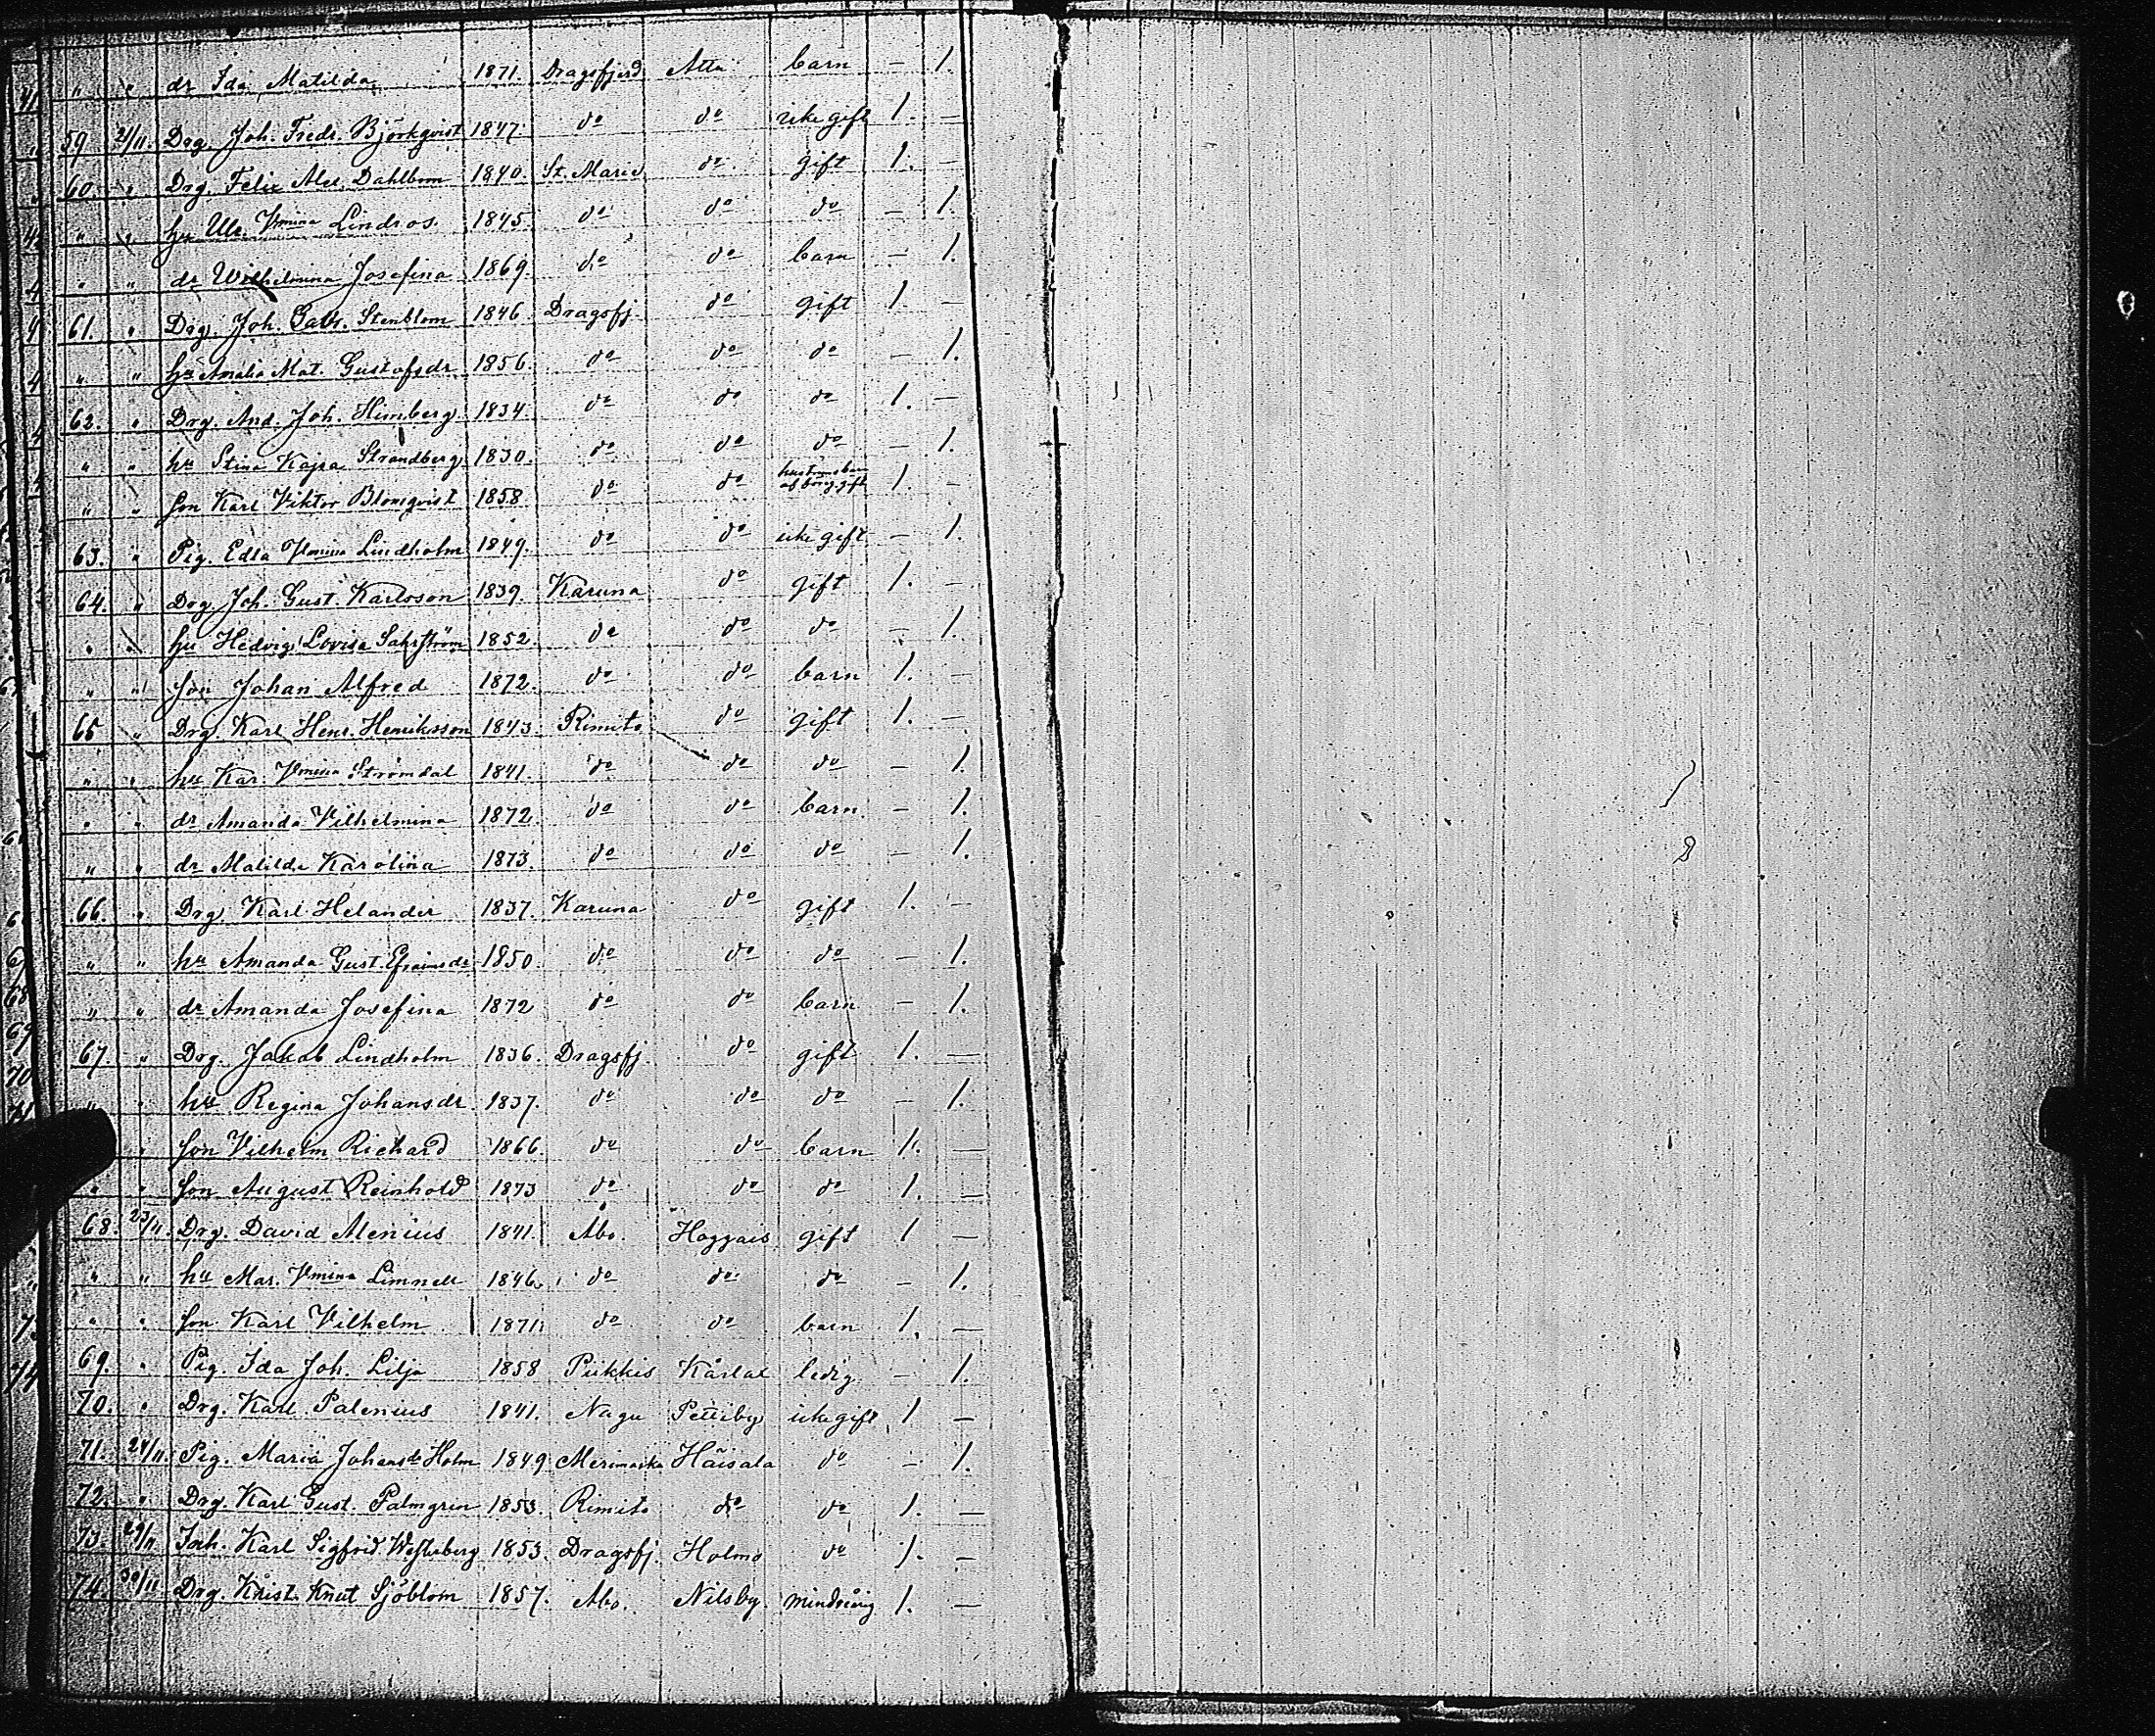 " " dr Ida Matilda 1871. Dragsfjerd Atta barn — 1.
59 21/11. Drg. Joh. Fredr. Björkqvist 1847. do do icke gift 1. —
60. " Drg. Felix Alex. Dahlbom 1840. St. Marie do gift 1. —
" " hu Ulr. Vmina Lindros. 1845. do do do — 1.
" " dr Wilhelmina Josefina 1869. do do barn — 1.
61. " Drg. Joh. Gabr. Stenblom 1846. Dragsfj. do gift 1. —
" " hu Amalia Mat. Gustafsdr 1856. do do do — 1.
62. " Drg. And. Joh. Himberg 1834. do do do 1. —
" " hu Stina Kajsa Strandberg 1830. do do do — 1.
" " Son Karl Viktor Blomqvist 1858 do do 1. —
63. " Pig. Edla Vmina Lindholm 1849. do do icke gift — 1.
64. " Drg. Joh. Gust. Karlsson 1839. Karuna do gift 1. —
" " hu Hedvig Lovisa 1852. do do do — 1.
" " Son Johan Alfred 1872. do do barn 1. —
65 " Drg. Karl Henr. Henriksson 1843. Rimito do gift 1. —
" " hu Kar. Vmina Strömdal 1841. do do do — 1.
" " dr Amanda Vilhelmina 1872. do do barn. — 1.
" " dr Matilda Karolina 1873. do do do — 1.
66. " Drg. Karl Helander 1837. Karuna do gift 1. —
" " hu Amanda Gust. Efraimsdr 1850. do do do — 1.
" " dr Amanda Josefina 1872 do do barn — 1.
67. " Drg. Jakob Lindholm 1836. Dragsfj. do gift 1. —
" " hu Regina Johansdr. 1837. do do do — 1.
" Son Vilhelm Richard 1866. do do barn 1. —
" " Son August Reinhold 1873 do do do 1. —
68. 23/11. Drg. David Menius 1841. Åbo. Hoggais gift 1 —
" " hu Mar. Vmina Limnell 1846. do do do — 1.
" " Son Karl Vilhelm 1871. do do barn 1. —
69. " Pig. Ida Joh. Lilja 1858 Piikkis Kårlal ledig — 1.
70. " Drg. Karl Palenius 1841. Nagu Pettiby icke gift 1 —
71. 24/11. Pig. Maria Johansdr Holm 1849 Merimasku Häisala do — 1.
72. " Drg. Karl Gust. Palmgren 1853. Rimito do do 1. —
73. 29/11 Inh. Karl Sigfrid Westerberg 1853. Dragsfj. Holmo do 1. —
74. 30/11 Drg. Krist. Knut Sjöblom 1857. Åbo. Nilsby. mindreårig 1. —